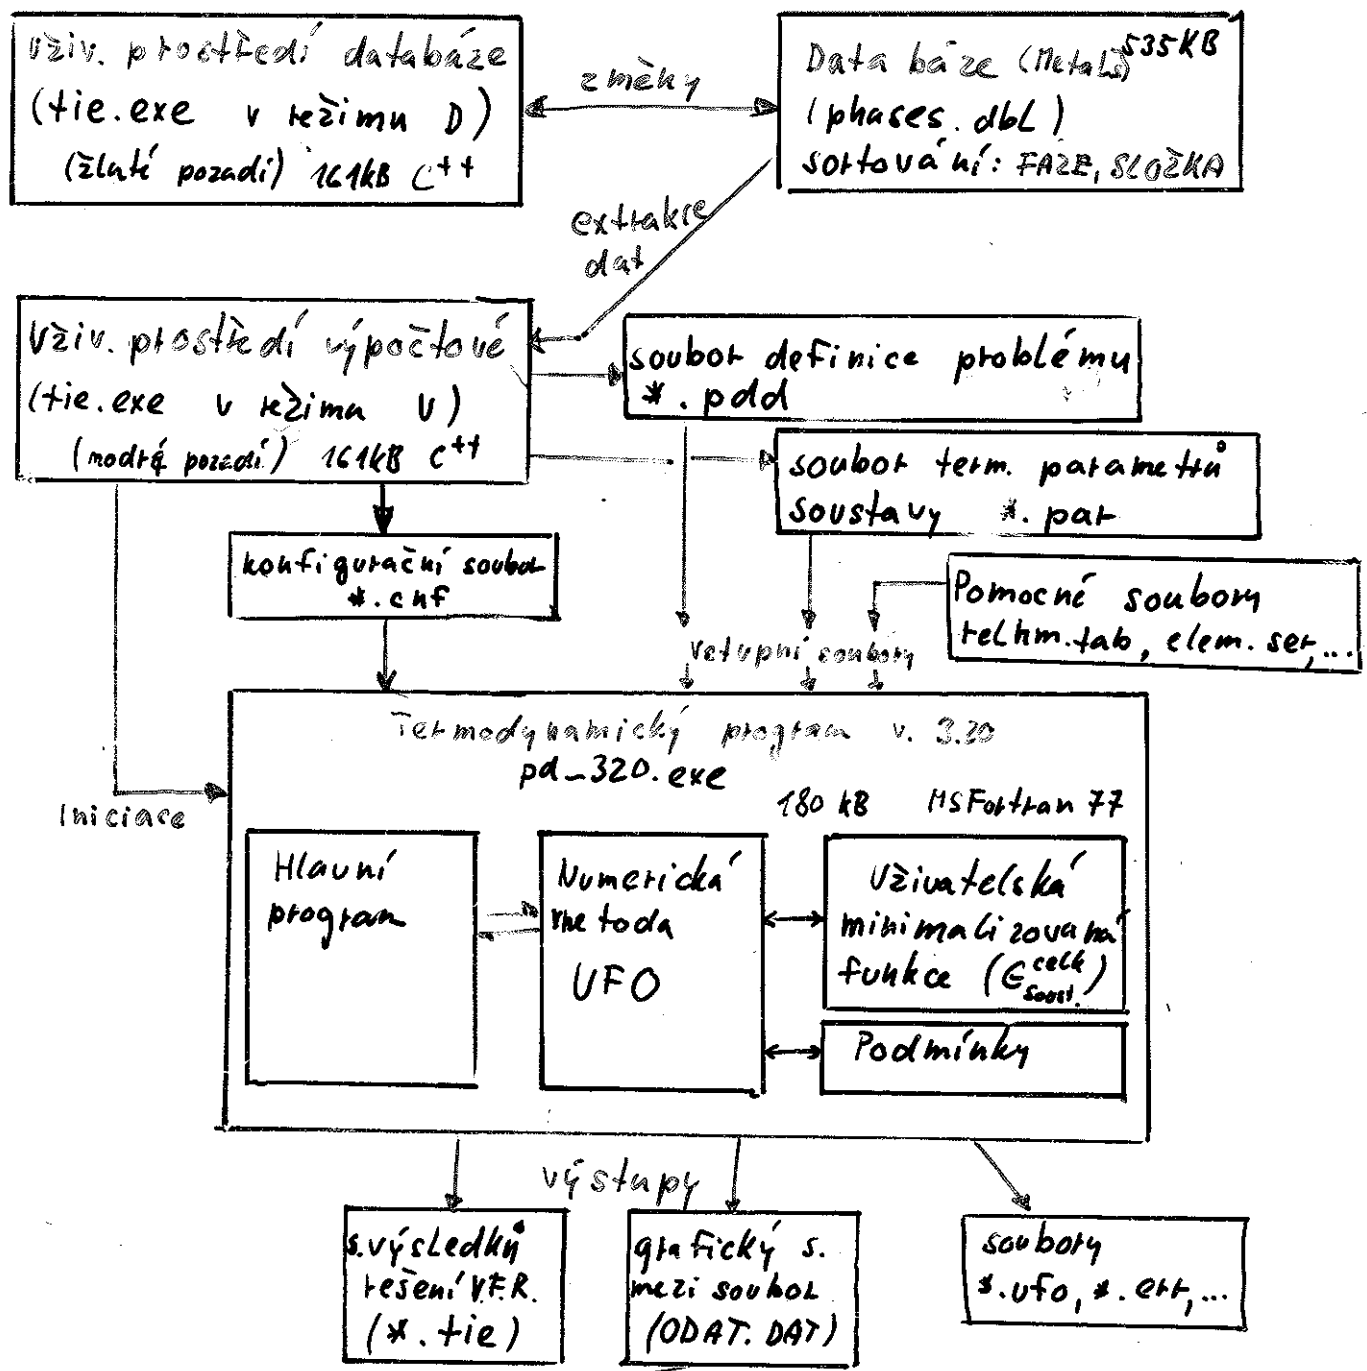 Uživ. prostředí databáze
(tie.exe v režimu D)
(žluté pozadí) 161kB C++
změny
Databáze (Metals) 535KB
(phases.dbl)
sortování: FÁZE, SLOŽKA
extrakce
dat
Uživ. prostředí výpočtové
(tie.exe v režimu V)
(modré pozadí) 161kB C++
soubor definice problému
*.pdd
soubor term. parametrů
soustavy *.par
konfigurační soubor
*.cnf
Pomocné soubory
relhm.tab, elem.ser,...
vstupní soubory
Termodynamický program v. 3.20
pd_320.exe
180 kB MSFortran 77
Iniciace
Hlavní
program
Numerická
metoda
UFO
Uživatelská
minimalizovaná
funkce (G celk soust.)
Podmínky
výstupy
s.výsledků
řešení V.F.R.
(*.tie)
grafický s.
mezisoubor
(ODAT.DAT)
soubory
*.ufo, *.err,...